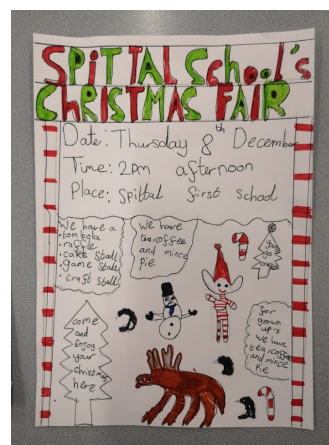 SPiTTAL School's
CHRiSTMAS FAiR
Date: Thursday 8th December
Time: 2pm afternoon
Place: Spittal first school
We have a
• tombola
• raffle
• cake stall
• game stall
• craft stall
We have
tea/coffee
and mince
Pie
come
and
Enjoy
your
christmas
here
for
grown
up's
We have
tea/coffee
and mince
Pie